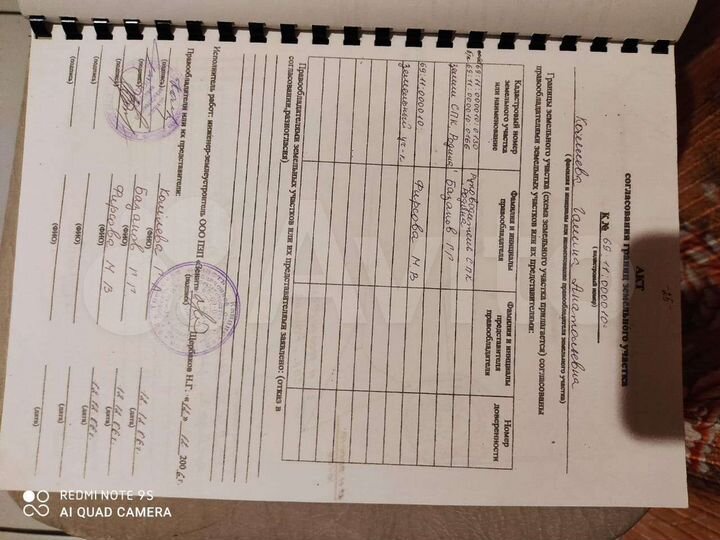 25
АКТ
согласования границ земельного участка
К № 69.11.000010:
( кадастровый номер)
Галина Анатольевна
( фамилия и инициалы или наименование правообладателя земельного участка)
Границы земельного участка (схема земельного участка прилагается) согласованы
правообладателями земельных участков или их представителями:
Кадастровый номер земельного участка или наименование
Фамилия и инициалы правообладателя
Фамилия и инициалы представителя правообладателя
Номер доверенности
69.11.000010:0130
69.11.000010:0166
земли СПК "Родина"
Руководитель СПК "Родина"
Базанов П.Р.
69.11.000010:
земельный уч-к
Фирсова М.В.
Правообладателями земельных участков или их представителями заявлено: (отказ в
согласовании,разногласия)
Исполнитель работ: инженер-землеустроитель ООО ПЗП
(подпись)
Щербаков Н.Г. «12» 11 2006г.
Правообладатели или их представители:
(подпись) (ФИО) 12.11.06г. (дата)
(подпись) Базанов П.Р. (ФИО) 12.11.06г. (дата)
(подпись) Фирсова М.В. (ФИО) 12.11.06г. (дата)
(подпись) (ФИО) (дата)
(подпись) (ФИО) (дата)
REDMI NOTE 9S
AI QUAD CAMERA